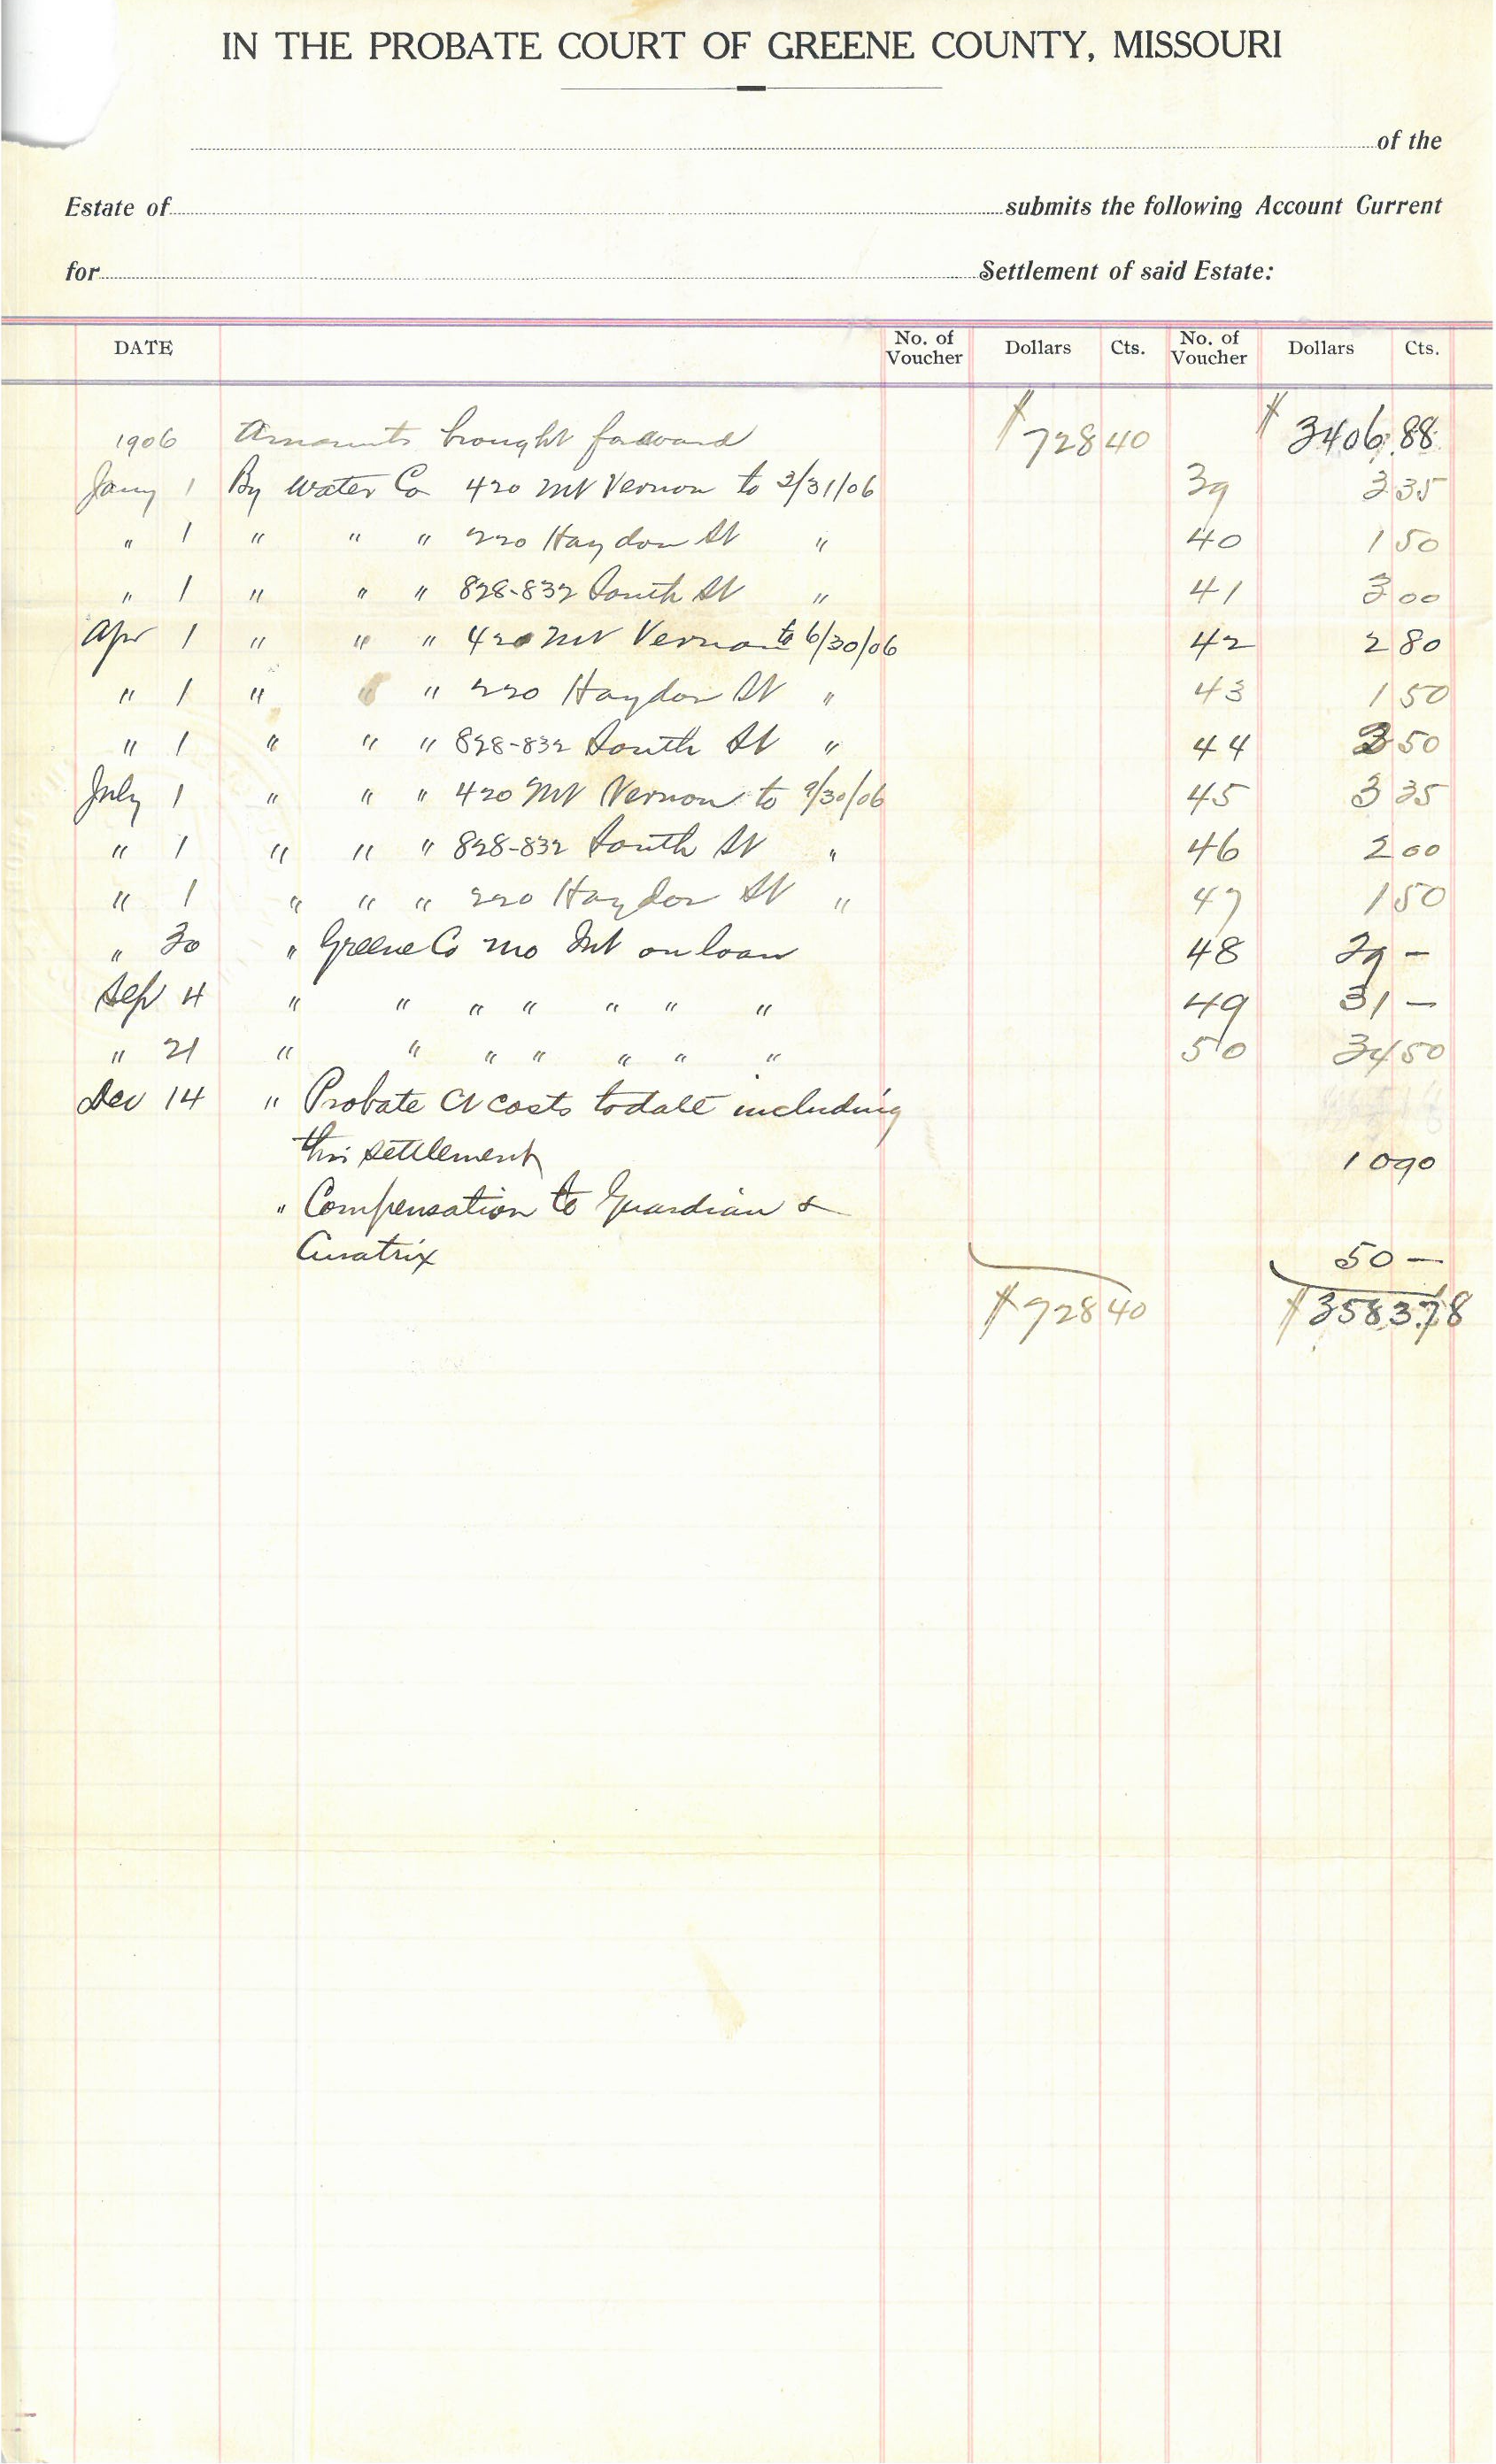 IN THE PROBATE COURT OF GREENE COUNTY, MISSOURI
of the
Estate of submits the following Account Current
for Settlement of said Estate:
DATE No. of Voucher Dollars Cts. No. of Voucher Dollars Cts.
1906 Amounts brought forward $728 40 $3406.88
Jany 1 By Water Co 420 Mt Vernon to 3/31/06 39 3 35
" 1 " " " 220 Haydon St " 40 1 50
" 1 " " " 828-832 South St " 41 3 00
Apr 1 " " " 420 Mt Vernon to 6/30/06 42 2 80
" 1 " " " 220 Haydon St " 43 1 50
" 1 " " " 828-832 South St " 44 50
July 1 " " " 420 Mt Vernon to 9/30/06 45 3 35
" 1 " " " 828-832 South St " 46 2 00
" 1 " " " 220 Haydon St " 47 1 50
" 30 " Greene Co Mo Int on loan 48 29 -
Sep 4 " " " " " " " 49 31 -
" 21 " " " " " " " 50 34 50
Dec 14 " Probate Ct costs to date including
this settlement 10 90
" Compensation to Guardian &
Curatrix 50 -
$728 40 $3583.78